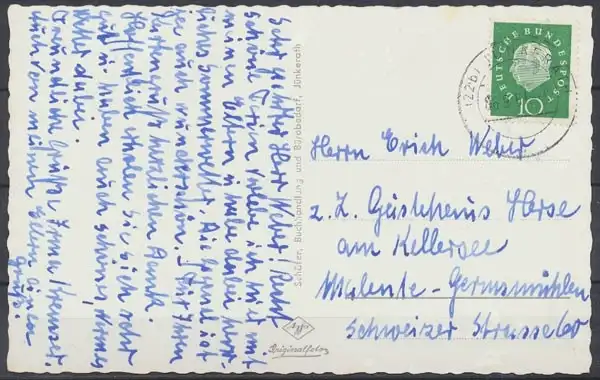 Sehr geehrter Herr Weber! Recht
schöne Ferien verlebe ich hier mit
meinen Eltern u. habe dabei herr-
liches Sonnenwetter. Die Gegend ist
hier auch wunderschön. Für Ihren
Kartengruß herzlichen Dank.
Hoffentlich erholen Sie sich sehr
gut u. haben auch schönes, warmes
Wetter dabei.
Freundliche Grüße Ihnen
auch von meinen Eltern liebe
Grüße.
Schäfer, Buchhandlung und Bürobedarf, Jünkerath
Originalfoto
DEUTSCHE BUNDESPOST
10
(22b)
Herrn Erich Weber
z. Z. Gästehaus Horse
am Kellersee
Malente-Gremsmühlen
Schweizer Strasse 60